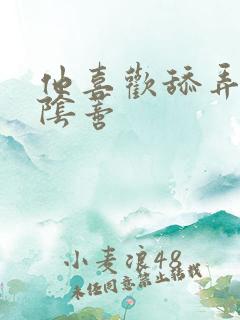 他喜歡舔弄
陰蒂
小麦浪48
未经同意禁止转载